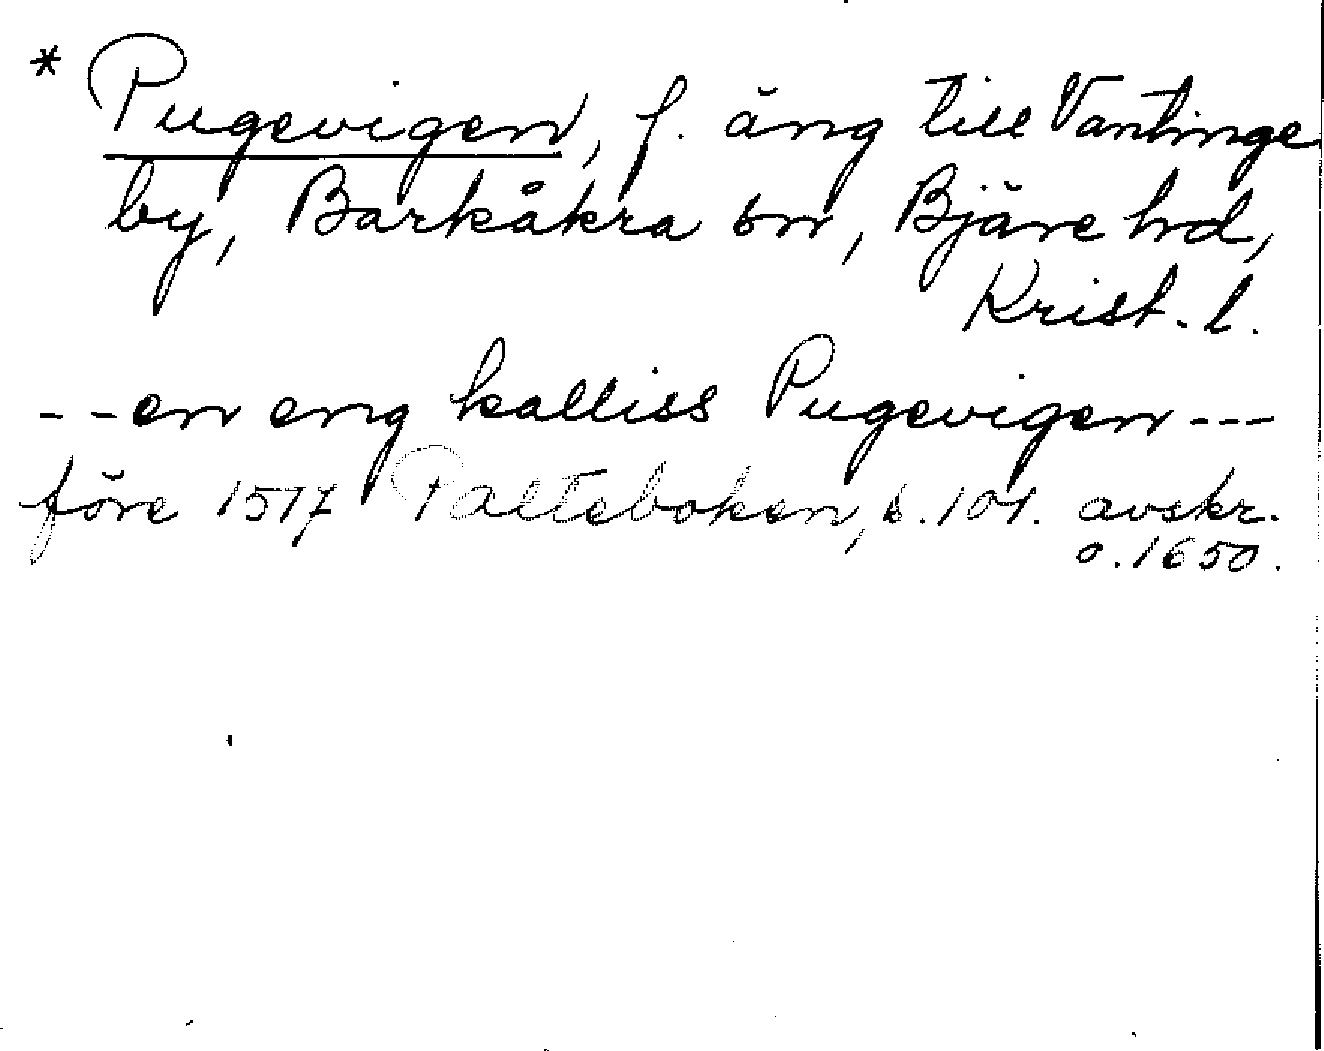 * Pugevigen, f. äng till Vantinge
by, Barkåkra sn, Bjäre hd,
Krist. l.
--en eng kalliss Pugevigen---
före 1517 Palteboken, s. 101. avskr.
o. 1650.